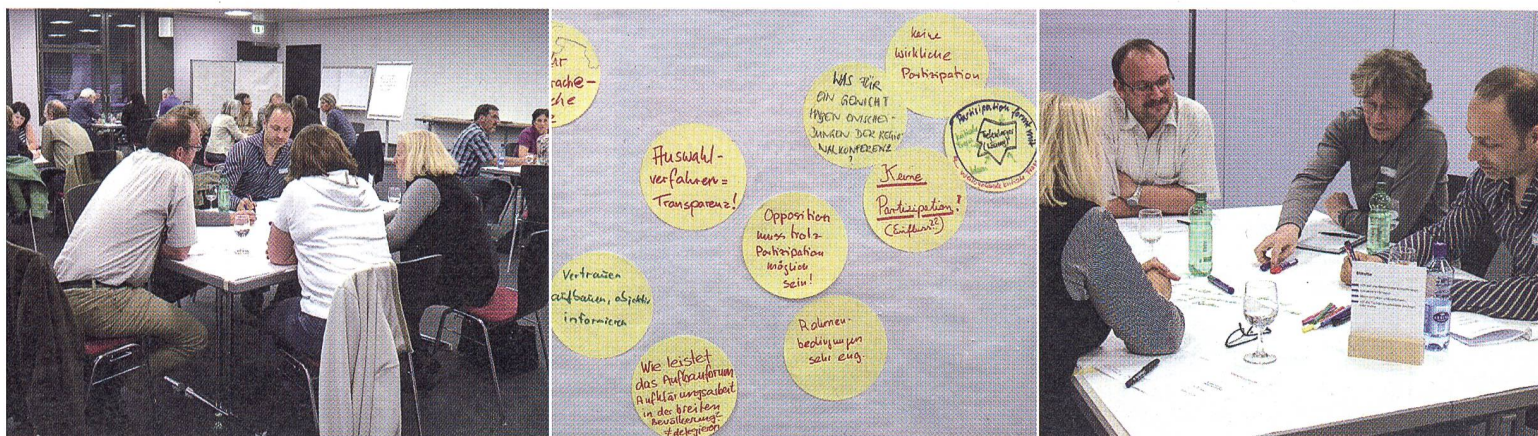 keine
wirkliche
Partizipation
WAS FÜR
EIN GEWICHT
HABEN ENTSCHEI-
DUNGEN DER REGIO-
NALKONFERENZ
?
Partizipation
Auswahl-
verfahren =
Transparenz!
Keine
Partizipation!
(Einfluss??)
Opposition
muss trotz
Partizipation
möglich
sein!
Vertrauen
aufbauen, objektiv
informieren
Rahmen-
bedingungen
sehr eng
Wie leistet
das Aufbauforum
Aufklärungsarbeit
in der breiten
Bevölkerung?
≠ delegieren